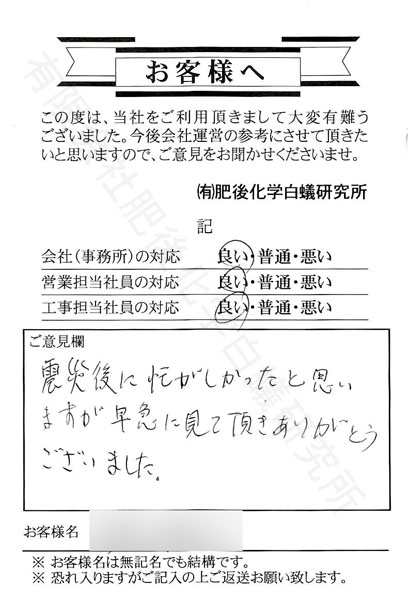 お客様へ
この度は、当社をご利用頂きまして大変有難う
ございました。今後会社運営の参考にさせて頂きた
いと思いますので、ご意見をお聞かせくださいませ。
㈲肥後化学白蟻研究所
記
会社(事務所)の対応 良い・普通・悪い
営業担当社員の対応 良い・普通・悪い
工事担当社員の対応 良い・普通・悪い
ご意見欄
震災後に忙がしかったと思い
ますが早急に見て頂きありがとう
ございました。
お客様名
※ お客様名は無記名でも結構です。
※ 恐れ入りますがご記入の上ご返送お願い致します。
有限会社肥後化学白蟻研究所